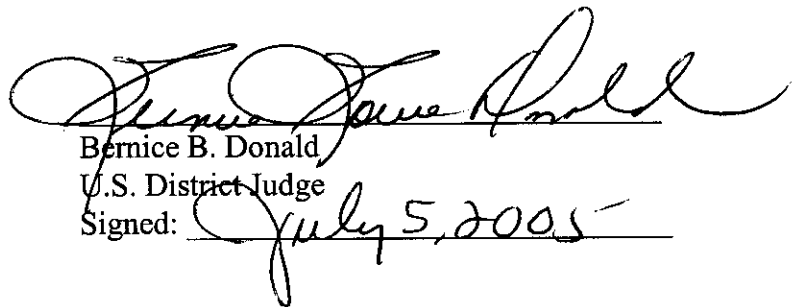 Bernice Bouie Donald
Bernice B. Donald
U.S. District Judge
Signed: July 5, 2005